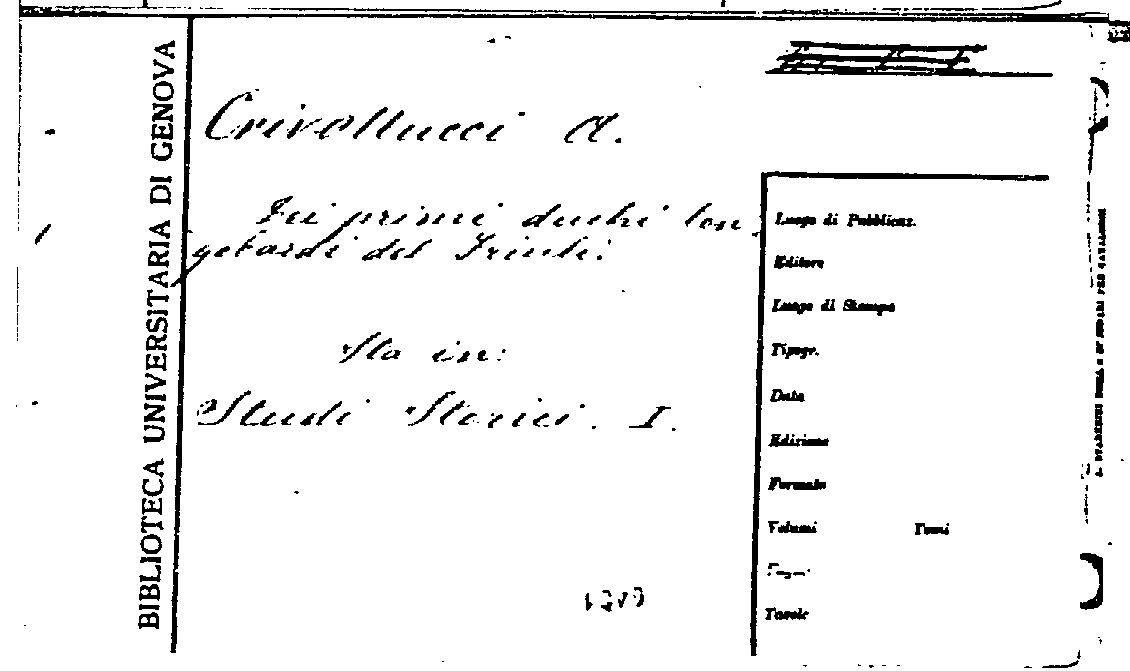 BIBLIOTECA UNIVERSITARIA DI GENOVA
Crivellucci A.
Dei primi duchi lon-
gobardi del Friuli.
Sta in:
Studi Storici. I.
Luogo di Pubblicaz.
Editore
Luogo di Stampa
Tipogr.
Data
Edizione
Formato
Volumi Tomi
Pagine
Tavole